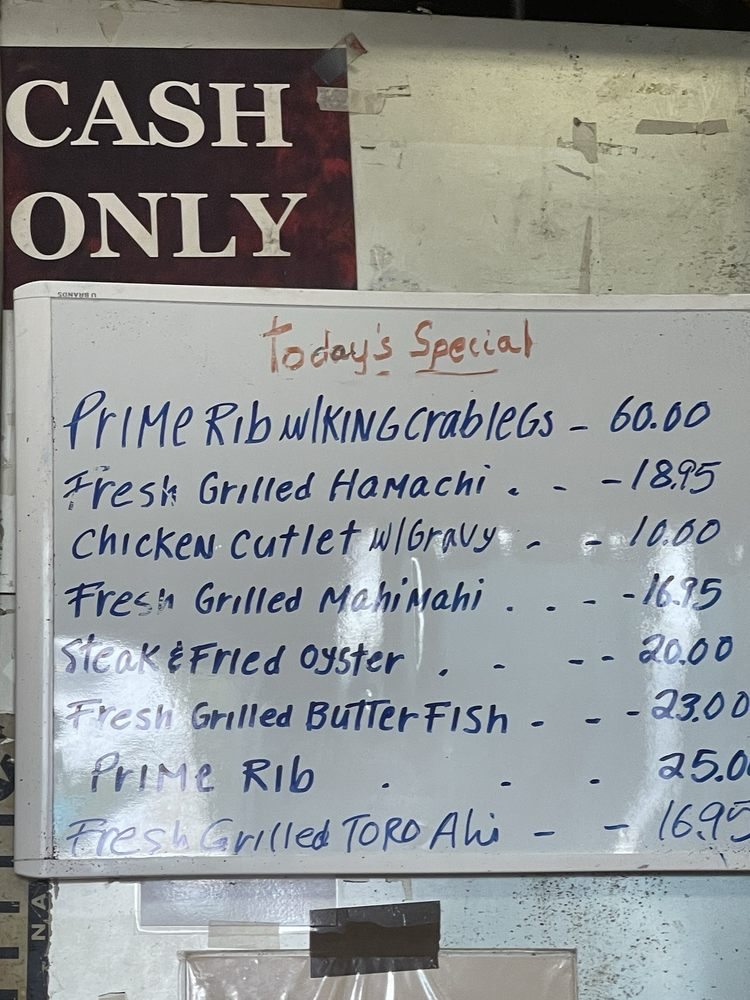 CASH
ONLY
U BRANDS
Today's Special
Prime Rib w/King crab legs - 60.00
Fresh Grilled Hamachi . - - 18.95
Chicken Cutlet w/Gravy - - 10.00
Fresh Grilled MahiMahi . . - - 16.95
Steak & Fried Oyster . - - - 20.00
Fresh Grilled Butter Fish - - - 23.00
Prime Rib . - - 25.0
Fresh Grilled TORO Ahi - - 16.95
N/A